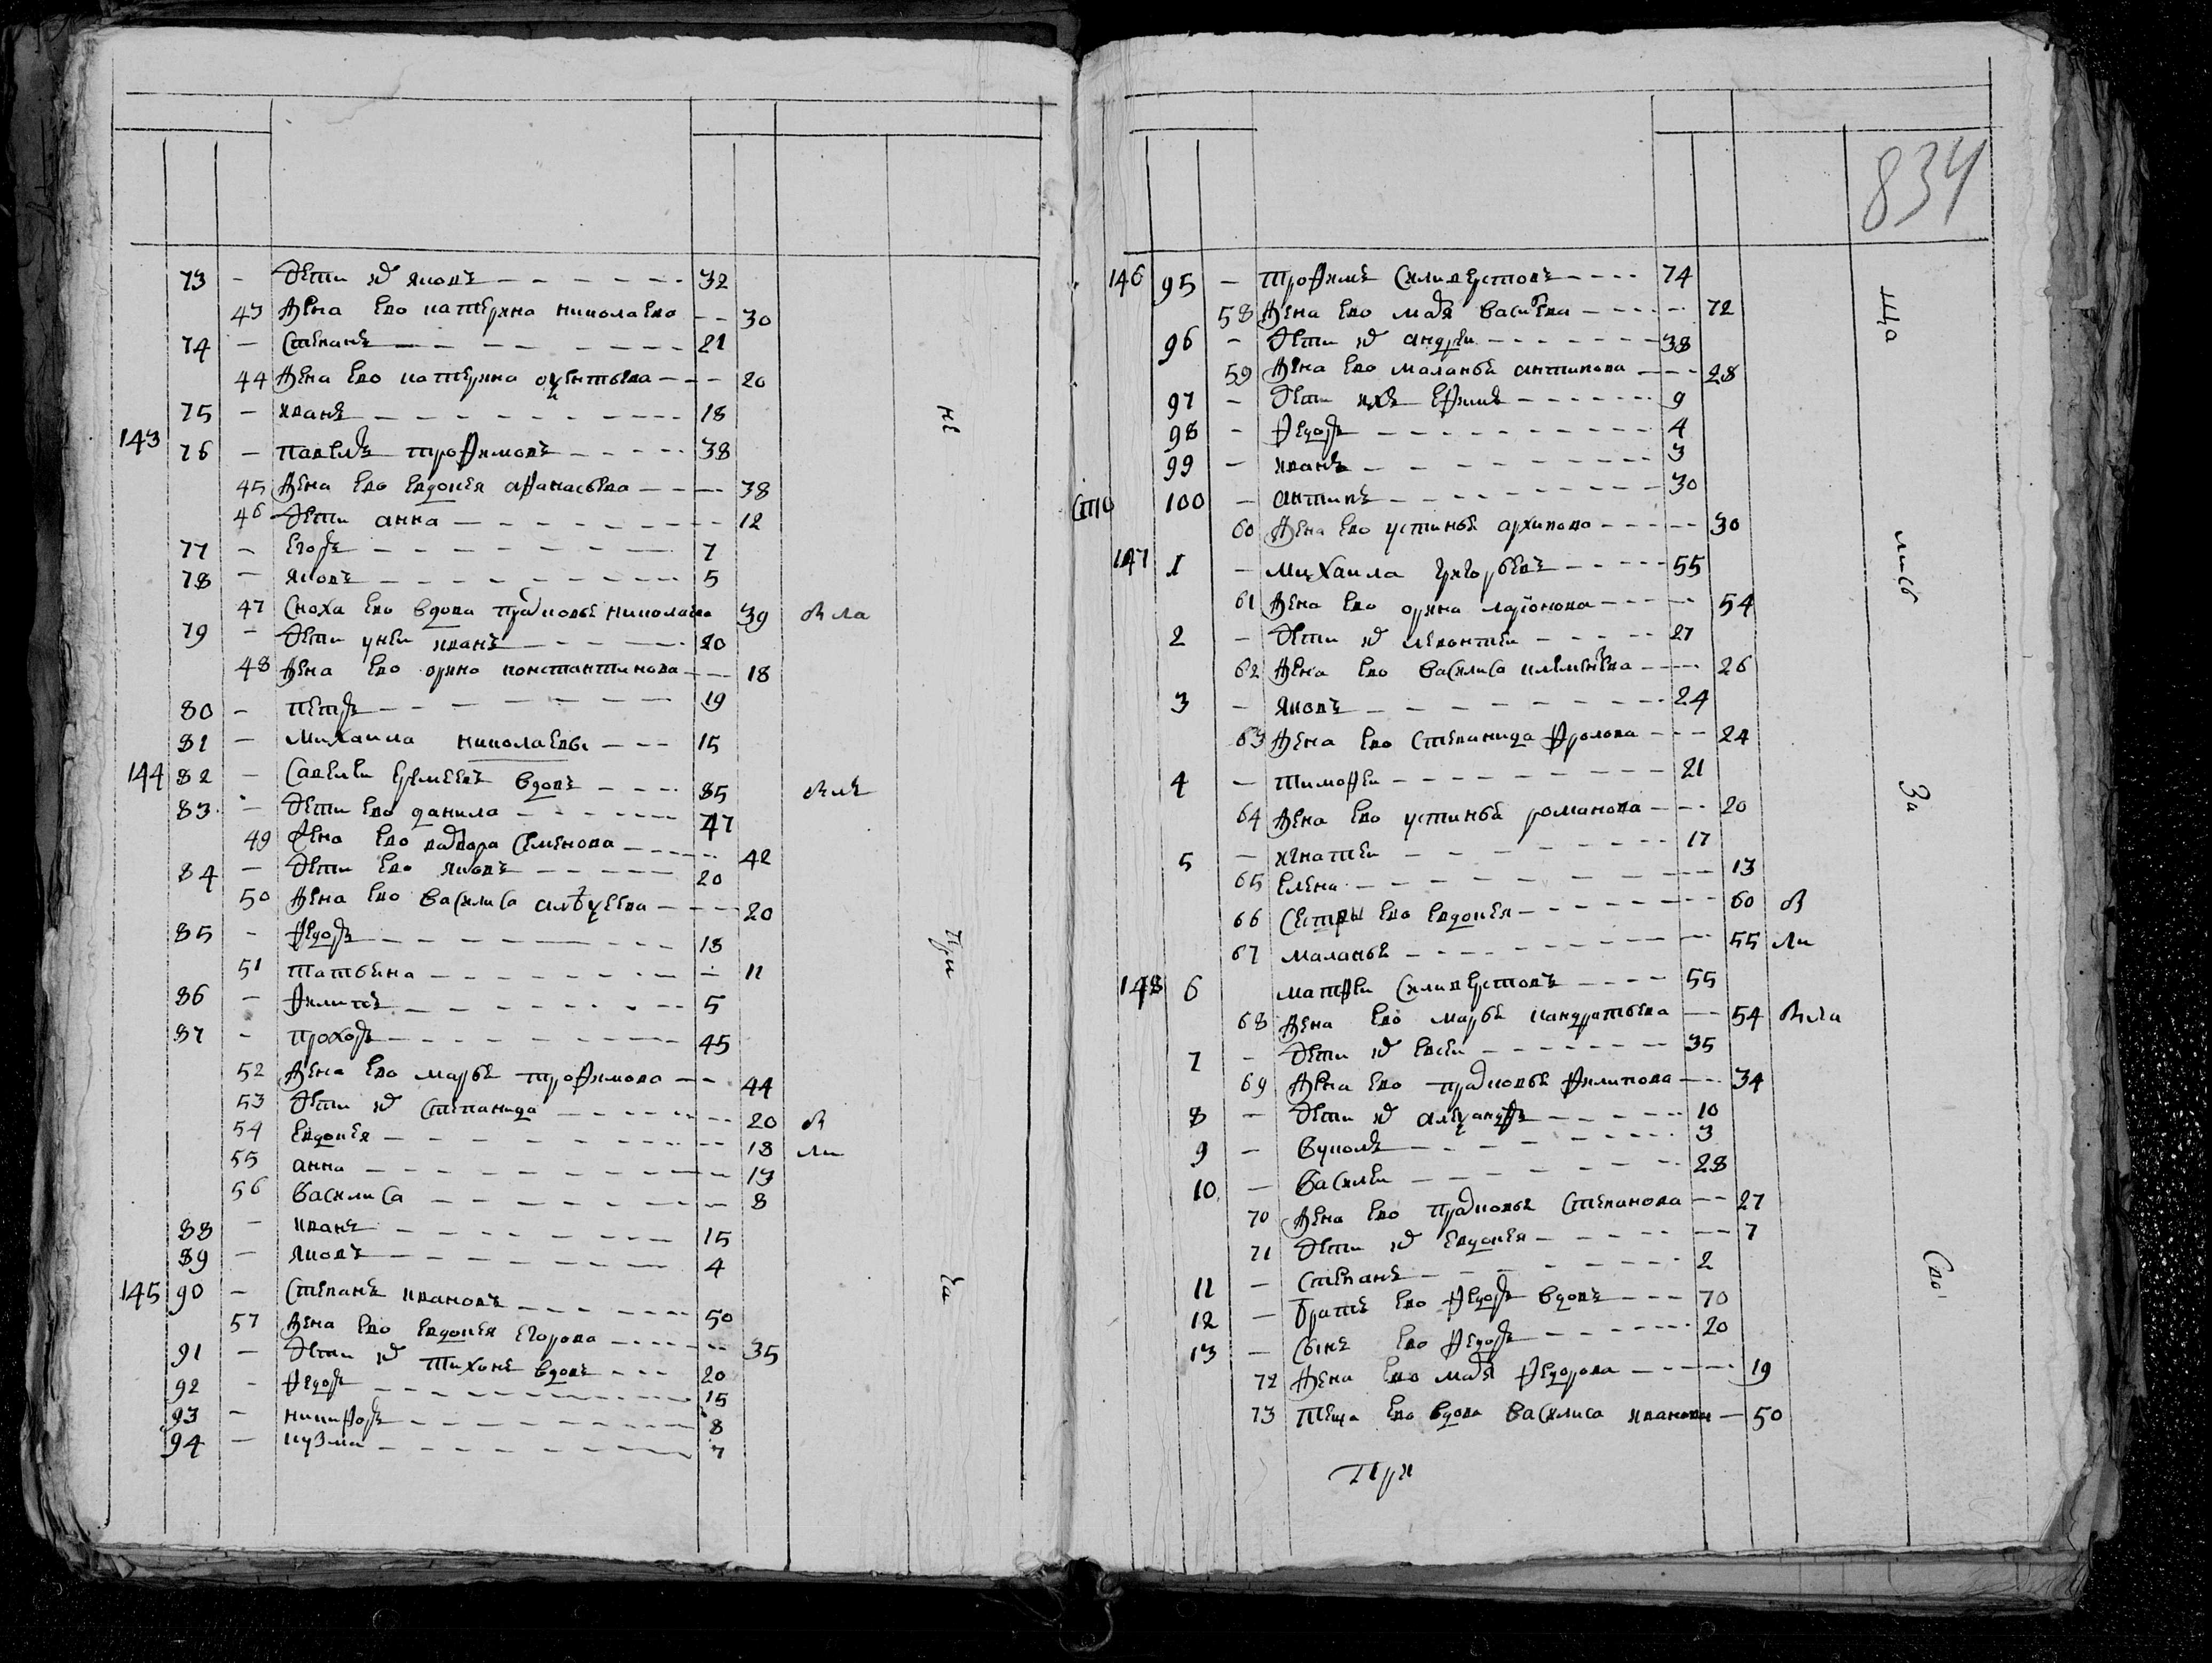 73 - Дети их Яковъ - - - 32
43 Жена ево катерина николаева - - 30
74 - Степанъ - - - 21
44 Жена ево катерина - - - 20
75 - иванъ - - - 18
143 76 - павелъ трофимовъ - - - 38
45 Жена ево евдокея афанасьева - - - 38
46 Дети анна - - - 12
77 - егоръ - - - 7
78 - яковъ - - - 5
47 Сноха ево вдова прасковья николаева 39
79 - Дети у неи иванъ - - - 20
48 Жена ево орина константинова - - - 18
80 - петръ - - - 19
81 - михаила николаевы - - - 15
144 82 - Савелеи еремеевъ вдовъ - - - 85
83 - Дети ево данила - - - 47
49 Жена ево варвара Семенова - - - 42
84 - Дети ево яковъ - - - 20
50 Жена ево василиса алѣксеева - - - 20
85 - Федоръ - - - 18
51 татьяна - - - 11
86 - филипъ - - - 5
87 - прохоръ - - - 45
52 Жена ево марья трофимова - - 44
53 Дети их Степанида - - - 20 в
54 евдокея - - - 18 ли
55 анна - - - 17
56 василиса - - - 8
88 - иванъ - - - 15
89 - яковъ - - - 4
145 90 - Степанъ ивановъ - - - 50
57 Жена ево евдокея егорова - - - 35
91 - Дети их тихонъ вдовъ - - - 20
92 - Федоръ - - - 15
93 - никифоръ - - - 8
94 - кузма - - - 7
не
при
ча
834
146 95 - трофимъ Силиверстовъ - - - 74
58 Жена ево марья васильева - - - 72
96 - Дети их андреи - - - 38
59 Жена ево маланья антипова - - - 28
97 - Дети ихъ ефимъ - - - 9
98 - Федоръ - - - 4
99 - иванъ - - - 3
сто 100 - антипъ - - - 30
60 Жена ево устинья архипова - - - 30
147 1 - михаила григорьевъ - - - 55
61 Жена ево орина ларионова - - - 54
2 - Дети их леонтеи - - - 27
62 Жена ево василиса клементьева - - - 26
3 - яковъ - - - 24
63 Жена ево Степанида фролова - - - 24
4 - тимофеи - - - 21
64 Жена ево устинья романова - - - 20
5 - игнатеи - - - 17
65 елена - - - 13
66 Сестры ево евдокея - - - 60 в
67 маланья - - - 55 ли
148 6 матфеи Силиверстовъ - - - 55
68 Жена ево марья кандратьева - - 54
7 - Дети их евсеи - - - 35
69 Жена ево прасковья филипова - - - 34
8 - Дети их александръ - - - 10
9 - вуколъ - - - 3
10 - василеи - - - 28
70 Жена ево прасковья Степанова - - 27
71 Дети их евдокея - - - 7
11 - Степанъ - - - 2
12 - братъ ево Федоръ вдовъ - - - 70
13 - Сынъ ево Федоръ - - - 20
72 Жена ево марья Федорова - - - 19
73 теща ево вдова василиса иванова - 50
При
лица
листъ
За
Сво-